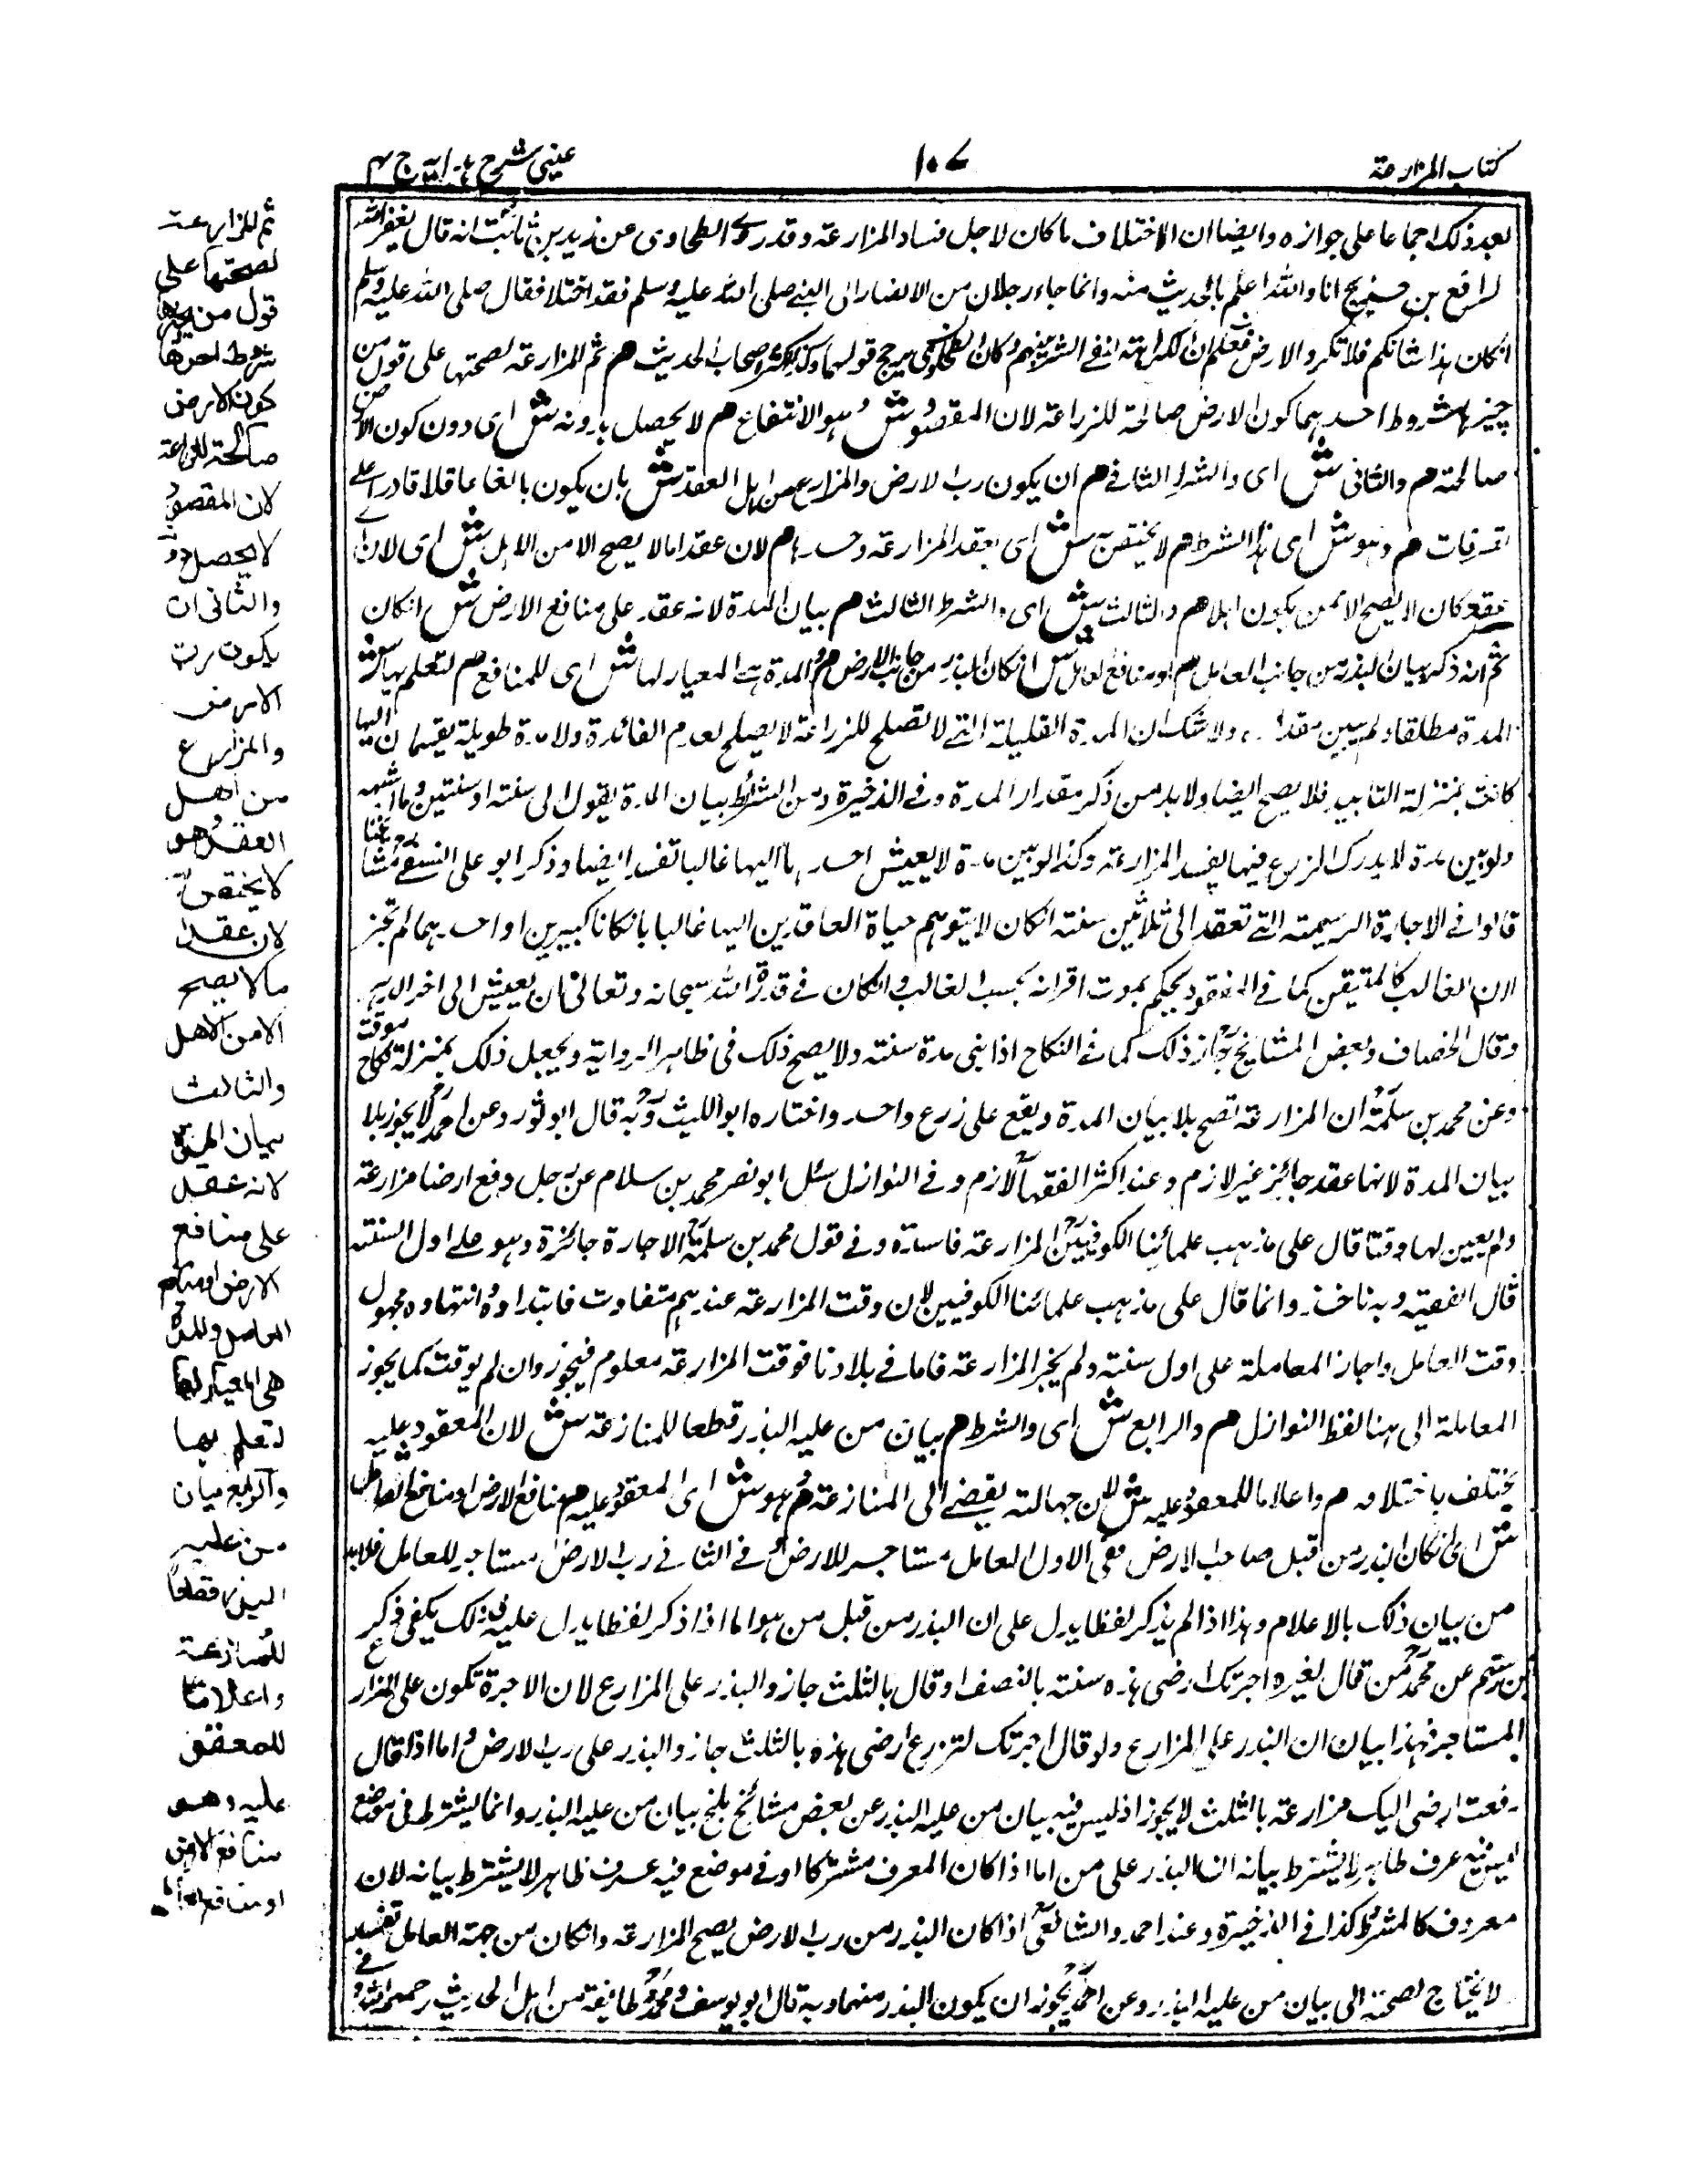 كتاب المزارعة
١٠٧
عينى شرح هدايه ج ٤
بعد ذلك اجماعا على جوازه وايضا ان الاختلاف ما كان لاجل فساد المزارعة وقد روى الطحاوى عن زيد بن ثابت انه قال يغفر الله
لرافع بن خديج انا والله اعلم بالحديث منه وانما جاء رجلان من الانصار الى النبى صلى الله عليه وسلم فقد اختلا فقال صلى الله عليه وسلم
انكان هذا شانكم فلا تكروا الارض فعلم ان الكراهة لنفى الشر بينهم وكان الطحاوى يرجح قولهما وكذلك اكثر اصحاب الحديث هم ثم المزارعة لصحتها على قول من
يجيزها شروط احدهما كون الارض صالحة للزراعة لان المقصود ش وهو الانتفاع هم لا يحصل بدونه ش اى دون كون الارض
صالحة هم والثانى ش اى والشرط الثانى هم ان يكون رب الارض والمزارع من اهل العقد ش بان يكون بالغا عاقلا قادرا على
تصرفات هم وهو ش اى هذا الشرط هم لا يختص به ش اى بعقد المزارعة وحدها هم لان عقدا ما لا يصح الا من الاهل ش اى لان اى
عقد كان لا يصح الا ممن يكون اهلا هم والثالث ش اى والشرط الثالث هم بيان المدة لانه عقد على منافع الارض ش انكان
ثم انه ذكر بيان البذر من جانب العامل هم او منافع العامل ش انكان البذر من جانب الارض هم والمدة هى المعيار لها ش اى للمنافع هم لتعلم بها ش
المدة مطلقا ولم يبين مقدارها ولا شك ان المدة القليلة التى لا تصلح للزراعة لا يصلح لعدم الفائدة ولا مدة طويلة يقيمان اليها
كانت بمنزلة التابيد فلا يصح ايضا ولا بد من ذكر مقدار المدة وفى الذخيرة ومن الشرائط بيان المدة يقول الى سنة او سنتين وما اشبهه
ولو بين مدة لا يدرك الزرع فيها يفسد المزارعة وكذا لو بين مدة لا يعيش احدهما اليها غالبا تفسد ايضا وذكر ابو على النسفى مشائخنا
قالوا فى الاجارة الرسمية التى تعقد الى ثلاثين سنة انكان لا يتوهم حياة العاقدين اليها غالبا بان كانا كبيرين او احدهما لم تجز
لان الغالب كالمتيقن كما فى المفقود يحكم بموت اقرانه بحسب الغالب وانكان فى قدرة الله سبحانه وتعالى ان يعيش الى اخر الدهر
وقال الخصاف وبعض المشايخ جاز ذلك كما فى النكاح اذا بنى مدة سنة ولا يصح ذلك فى ظاهر الرواية ويجعل ذلك بمنزلة نكاح موقت
وعن محمد بن سلمة ان المزارعة تصح بلا بيان المدة ويقع على زرع واحد واختاره ابو الليث وبه قال ابو ثور وعن احمد لا يجوز بلا
بيان المدة لانها عقد جائز غير لازم وعند اكثر الفقهاء لازم وفى النوازل سئل ابو نصر محمد بن سلام عن رجل دفع ارضا مزارعة
ولم يعين لها وقتا قال على مذهب علمائنا الكوفيين المزارعة فاسدة وفى قول محمد بن سلمة الاجارة جائزة وهو على اول السنة
قال الفقيه وبه ناخذ وانما قال على مذهب علمائنا الكوفيين لان وقت المزارعة عندهم متفاوت فابتداؤه وانتهاؤه مجهول
وقت العامل واجاز المعاملة على اول سنة ولم يجز المزارعة فاما فى بلادنا فوقت المزارعة معلوم فيجوز وان لم يوقت كما يجوز
المعاملة الى هنا لفظ النوازل هم والرابع ش اى والشرط هم بيان من عليه البذر قطعا للمنازعة ش لان المعقود عليه
يختلف باختلافه هم واعلاما للمعقود عليه ش لان جهالته يفضى الى المنازعة هم وهو ش اى المعقود عليه هم منافع الارض او منافع العامل
ش اى انكان البذر من قبل صاحب الارض ففى الاول العامل مستاجر للارض وفى الثانى رب الارض مستاجر للعامل فلا بد
من بيان ذلك بالاعلام وهذا اذا لم يذكر لفظا يدل على ان البذر من قبل من هو اما اذا ذكر لفظا يدل عليه ذلك يكفى ذكر
بن رستم عن محمد من قال لغيره اجرتك ارضى هذه سنة بالنصف او قال بالثلث جاز والبذر على المزارع لان الاجرة تكون على المزارع
المستاجر فهذا بيان ان البذر على المزارع ولو قال اجرتك لتزرع ارضى هذه بالثلث جاز والبذر على رب الارض واما اذا قال
دفعت ارضى اليك مزارعة بالثلث لا يجوز اذ ليس فيه بيان من عليه البذر عن بعض مشائخ بلخ بيان من عليه البذر وانما يشترط فى موضع
ليس فيه عرف ظاهر لا يشترط بيانه ان البذر على من اما اذا كان العرف مشتركا او فى موضع فيه عرف ظاهر لا يشترط بيانه لان
معروف كالمشروط كذا فى الذخيرة وعند احمد والشافعى اذا كان البذر من رب الارض يصح المزارعة وانكان من جهة العامل تفسد
لا يحتاج لصحته الى بيان من عليه البذر وعن احمد يجوز ان يكون البذر منهما وبه قال ابو يوسف ومحمد وطائفة من اهل الحديث رحمهم الله
ثم المزارعة
لصحتها على
قول من يجيزها
شروط احدها
كون الارض
صالحة للزراعة
لان المقصود
لا يحصل دونه
والثانى ان
يكون رب
الارض
والمزارع
من اهل
العقد وهو
لا يختص به
لان عقدا
ما لا يصح
الا من الاهل
والثالث
بيان المدة
لانه عقد
على منافع
الارض او منافع
العامل والمدة
هى المعيار لها
لتعلم بها
والرابع بيان
من عليه
البذر قطعا
للمنازعة
واعلاما
للمعقود
عليه وهو
منافع الارض
او منافع